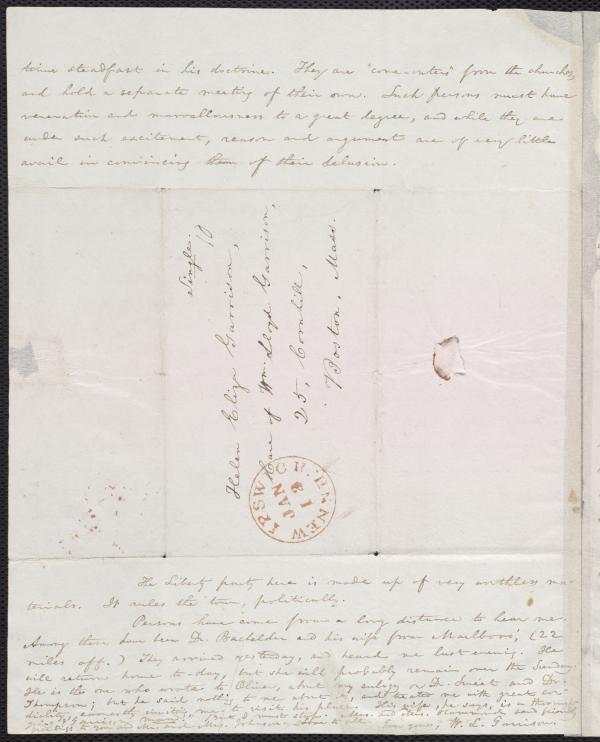 tinue steadfast in his doctrine. They are "come-outers" from the churches,
and hold a separate meeting of their own. Such persons must have
veneration and marvellousness to a great degree, and while they are
under such excitement, reason and argument are of very little
avail in convincing them of their delusion.
Single.
10
Helen Eliza Garrison,
Care of Wm. Lloyd Garrison,
25, Cornhill,
Boston, Mass.
NEW IPSWICH
JAN
The Liberty party here is made up of very worthless ma-
terials. It rules the town, politically.
Persons have come from a long distance to hear me.
Among them have been Dr. Bachelder and his wife from Marlboro', (22
miles off.) They arrived yesterday, and heard me last evening. He
will return home to-day, but she will probably remain over the Sunday.
He is the one who wrote to Oliver, about my eulogy on Dr. Sweet and Dr.
Thompson; but he said nothing to me about it, and treated me with great cor-
diality, earnestly inviting me to visit his place. His wife, he says, is a thorough
Garrison man. But I must stop. Mr. and Mrs.
to you and Mr. and Mrs. Johnson,
yours, W. L. Garrison.